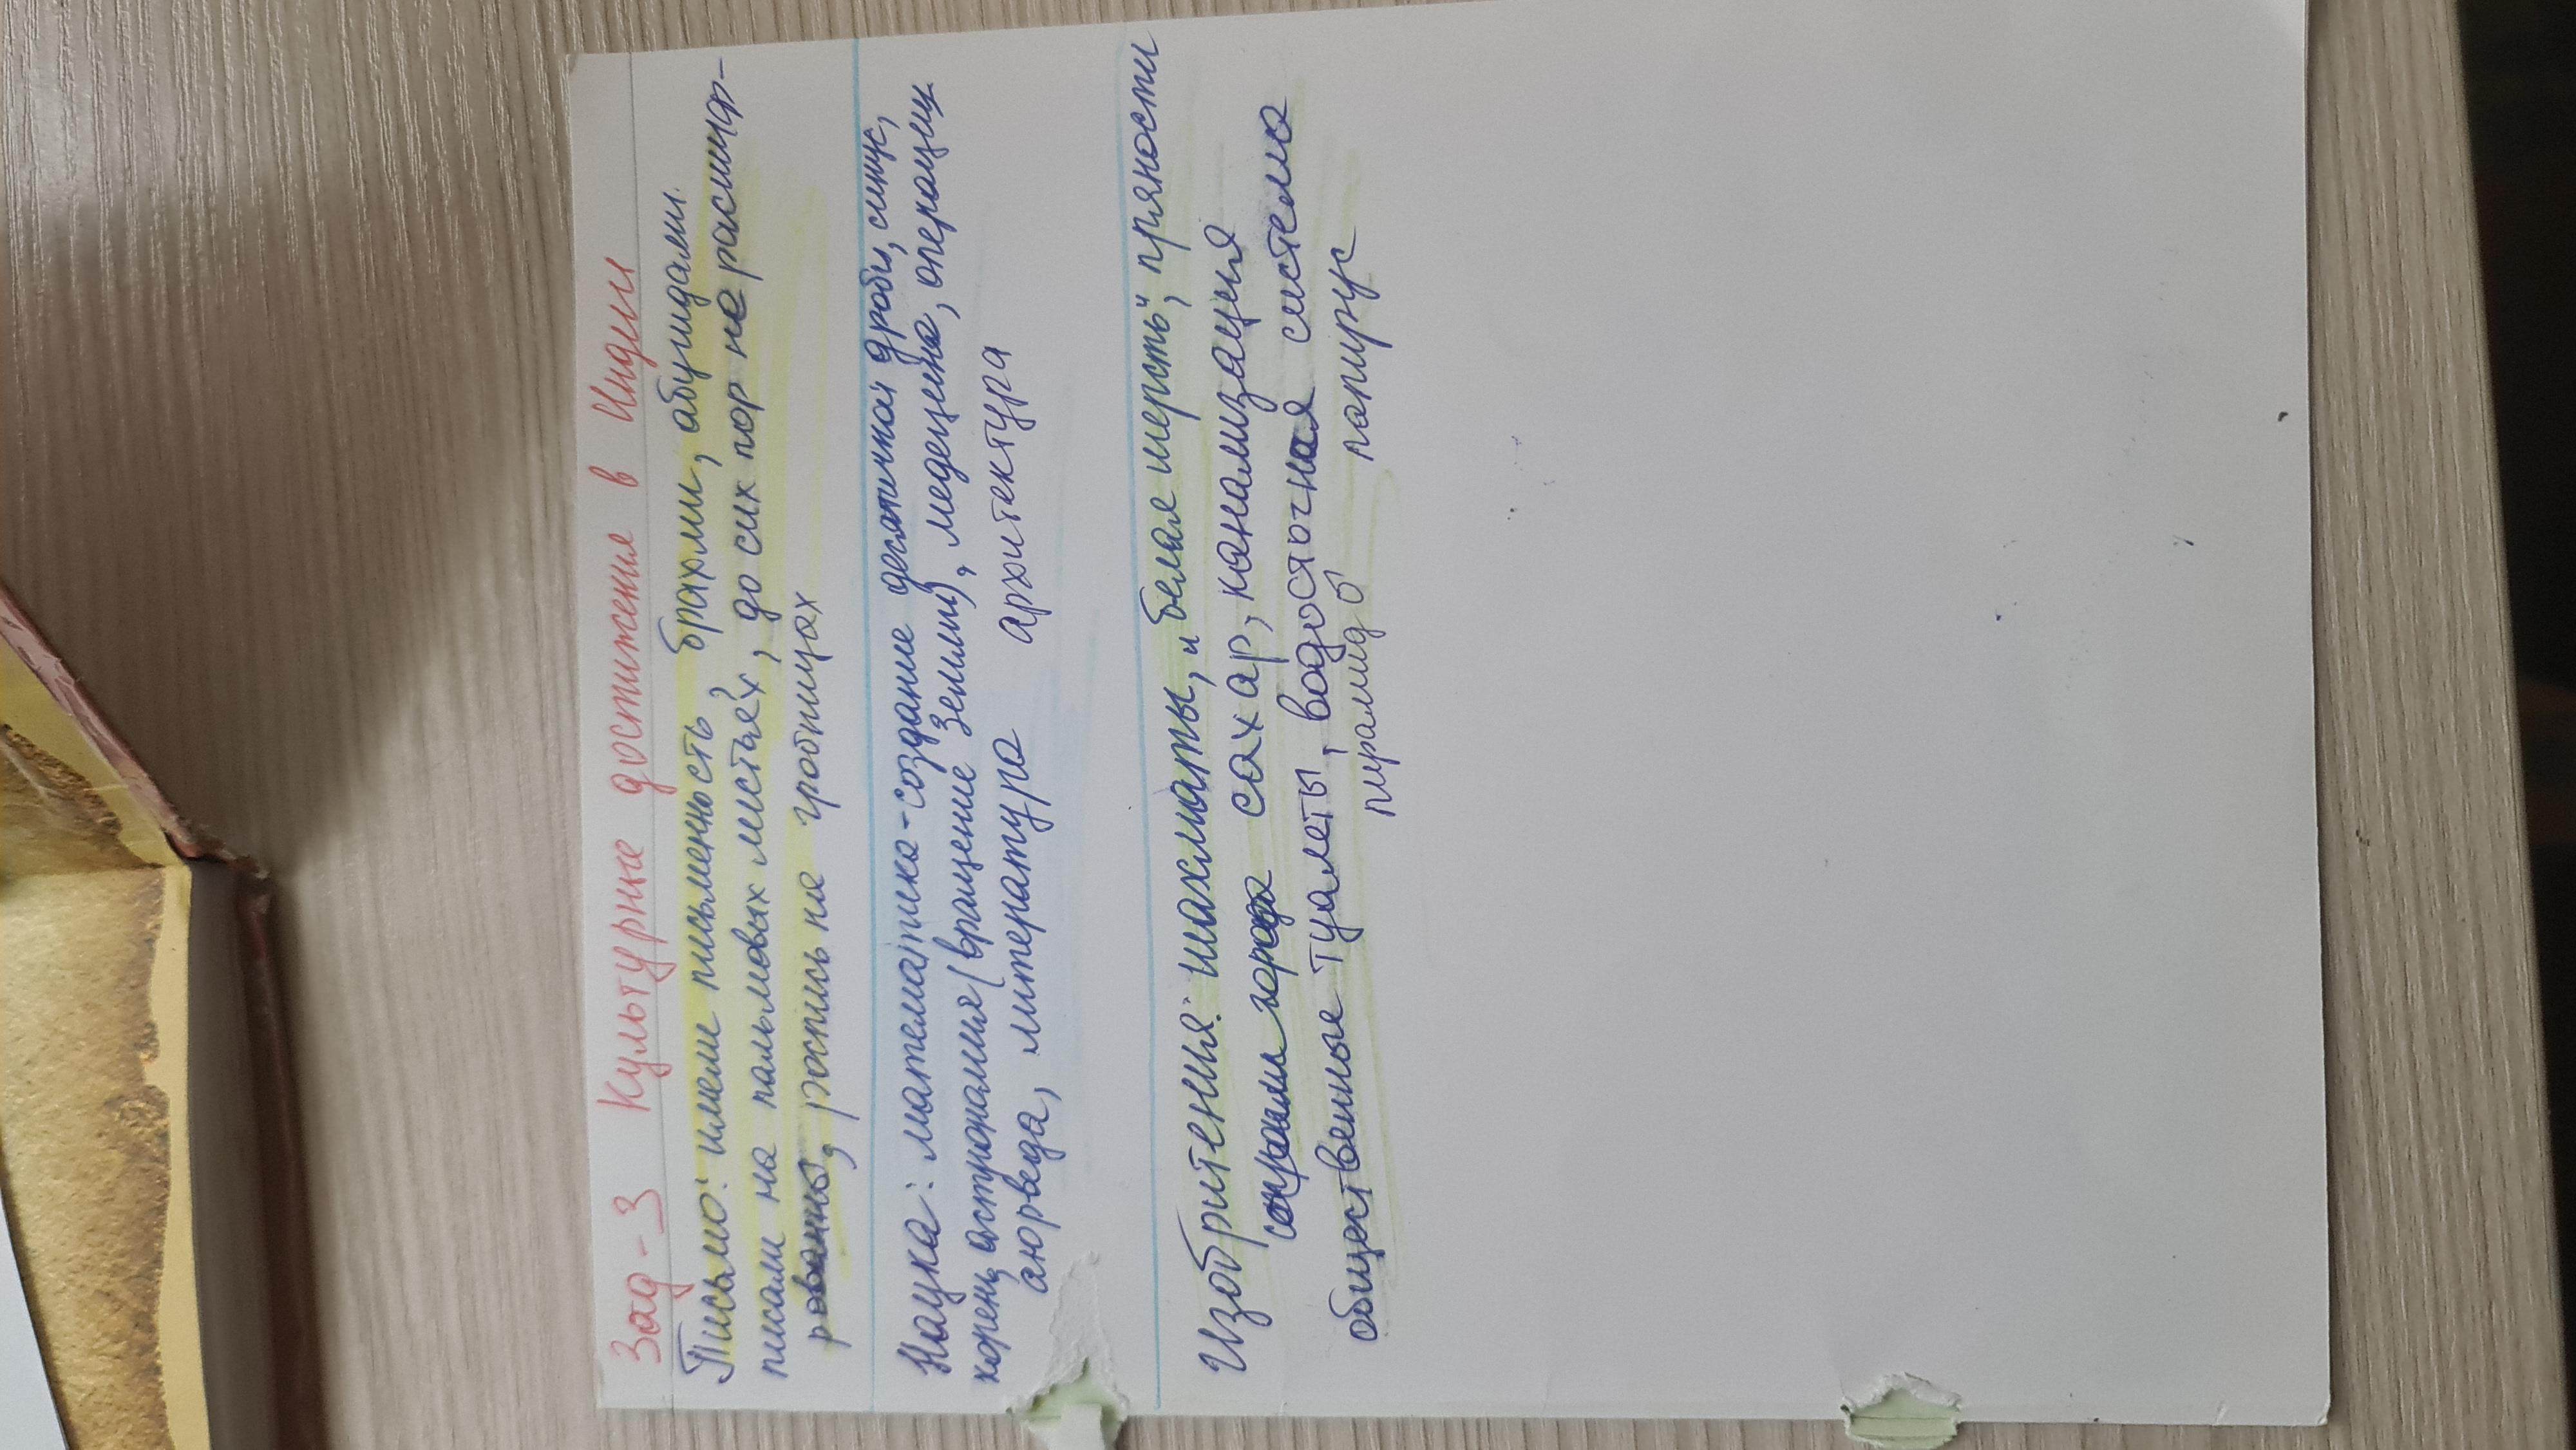 Зад-3 Культурные достижения в Индии
Письмо: имели письменность, брахми, абугидами.
писали на пальмовых листьях, до сих пор не расшиф-
рованно, роспись на гробницах
Наука: математика-создание десятичной дроби, синус,
корень, астрономия (вращение Земли), медецина, операции,
аюрведа, литература архитектура
Изобритения: шахматы, „белая шерсть", пряности
сахар, канализация
общественные туалеты, водосточная система
пирамид папирус